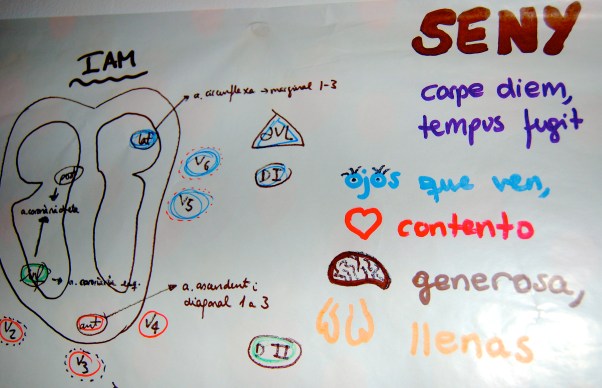 IAM
a. circunflexa → marginal 1-3
lat
aVL
V6
DI
V5
post
a. coronària dreta
inf
a. coronària esq.
a. descendent i
diagonal 1 a 3
ant
V2
V4
V3
DII
SENY
carpe diem,
tempus fugit
ojos que ven,
contento
generosa,
llenas